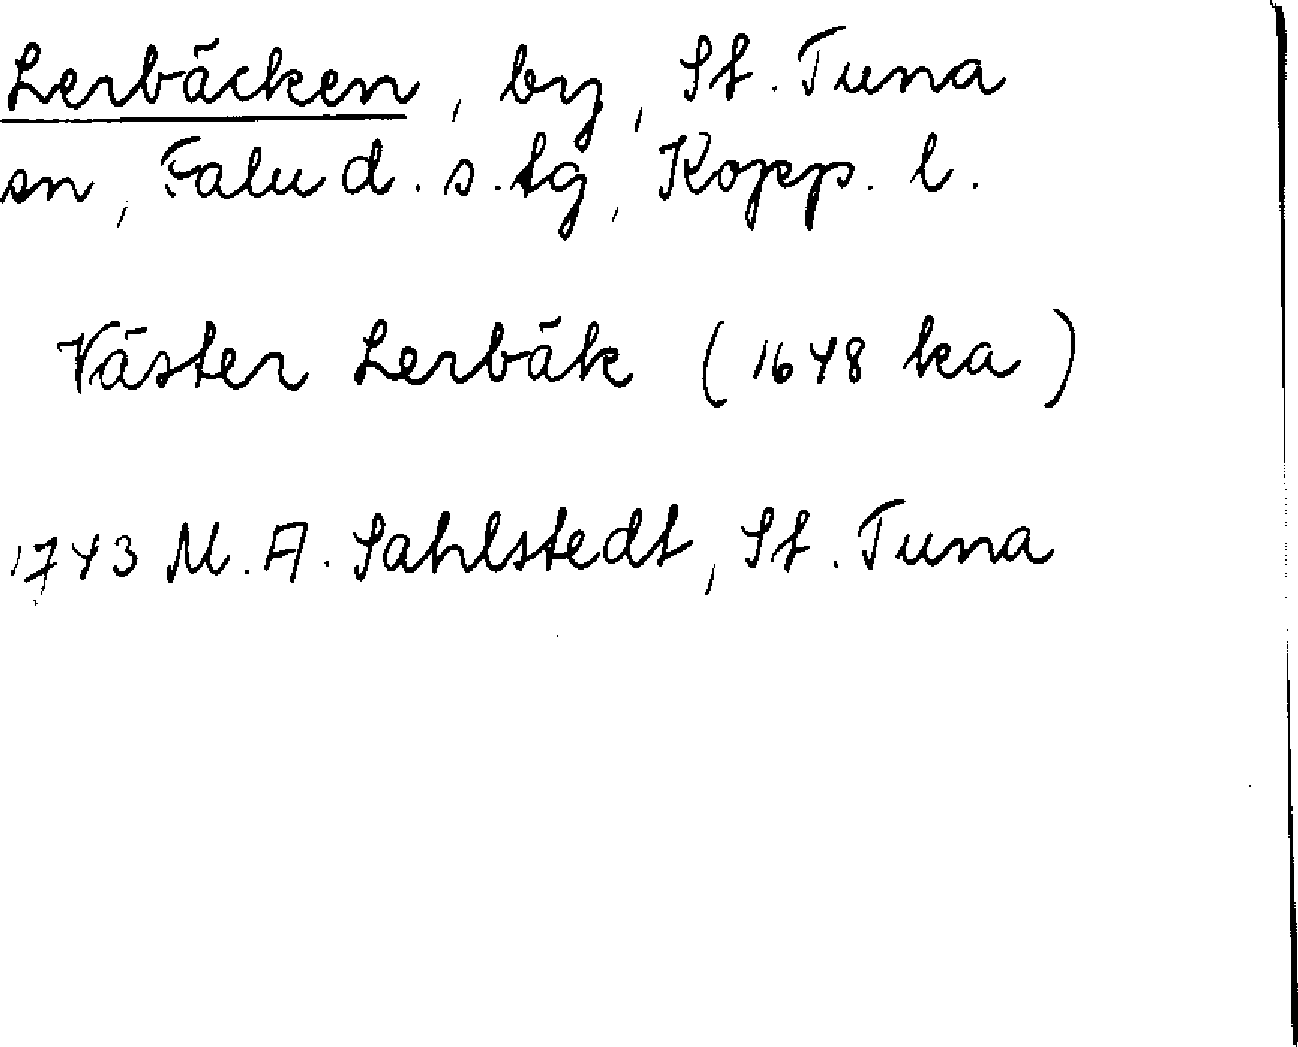 Lerbäcken, by, St. Tuna
sn, Falu d. s. tg, Kopp. l.
Väster Lerbäk (1648 ka)
1743 M. A. Sahlstedt, St. Tuna